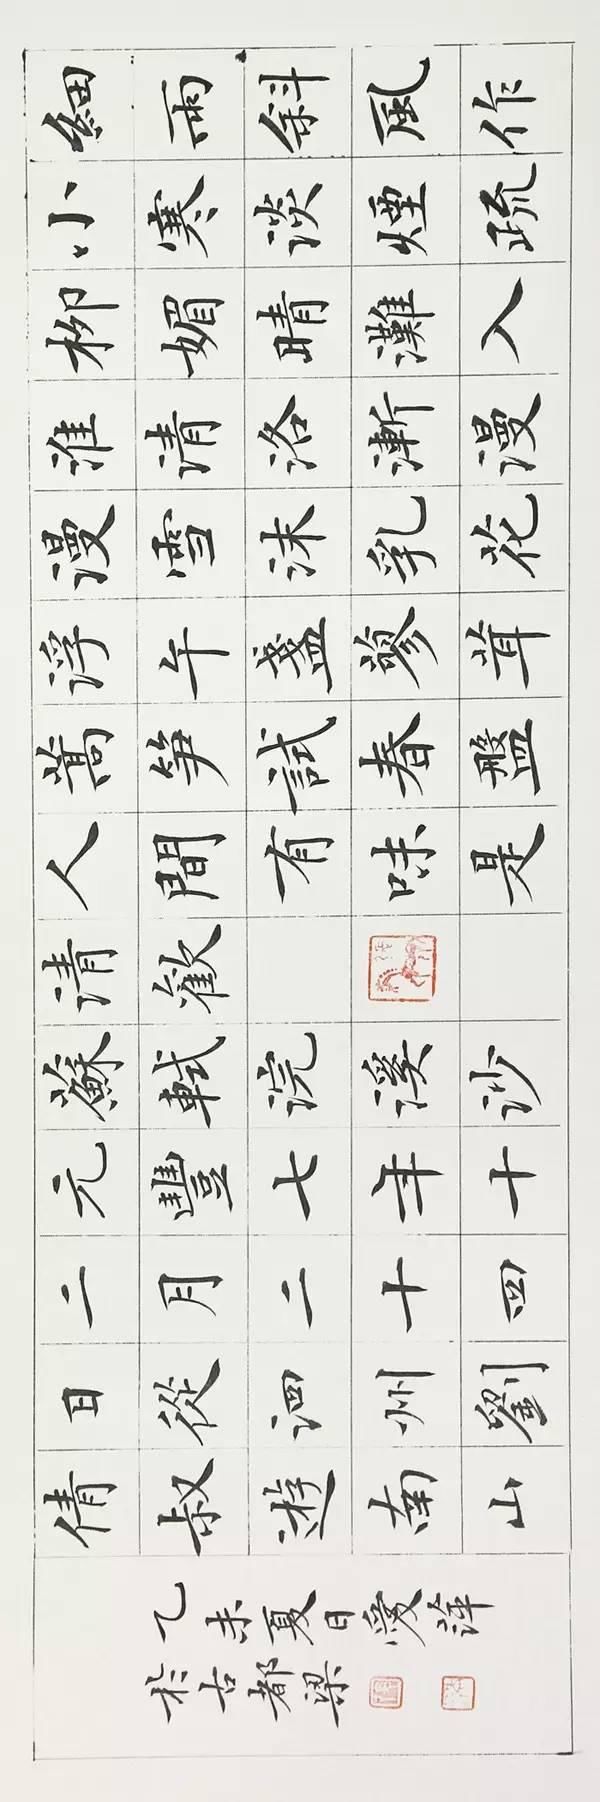 細雨斜風作
小寒淡煙疏
柳媚晴灘入
淮清洛漸漫
漫雪沫乳花
浮午盞蓼茸
蒿笋試春盤
人間有味是
清歡
蘇軾浣溪沙
元豐七年十
二月二十四
日從泗州劉
倩叔遊南山
乙未夏日愛萍
於古都梁